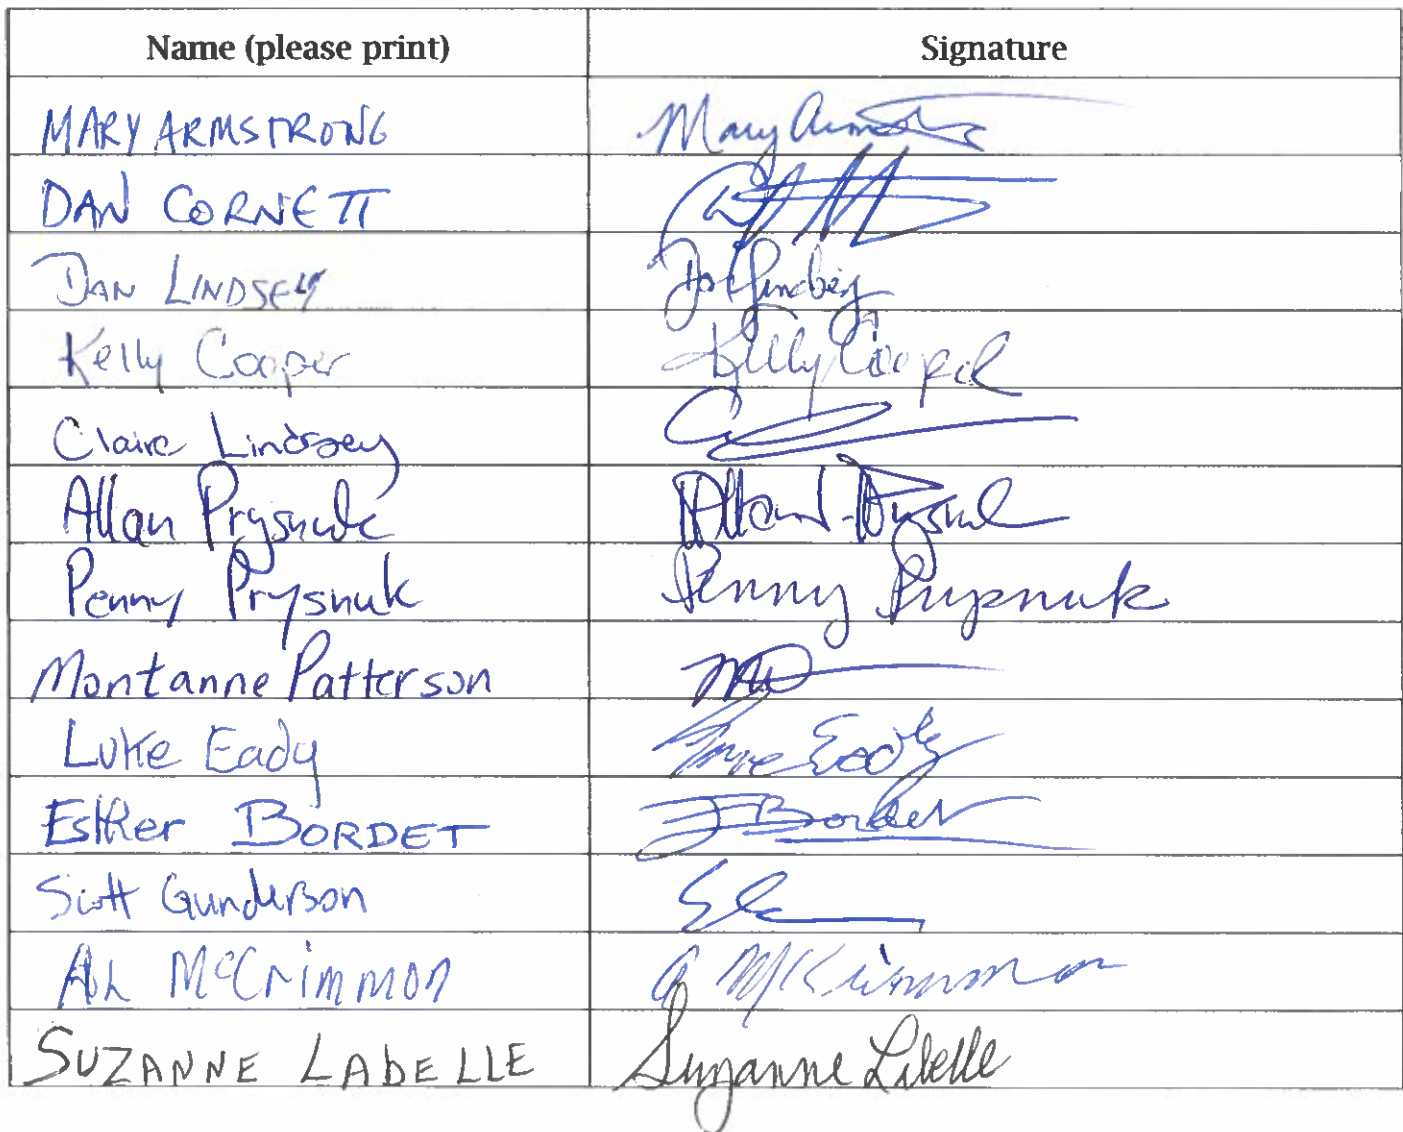 Name (please print) Signature
MARY ARMSTRONG Mary
DAN CORNETT
DAN LINDSEY
Kelly Cooper Kelly Cooper
Claire Lindsey
Allan Prysnuk
Penny Prysnuk Penny Prysnuk
Montanne Patterson
Luke Eady Eady
Esther BORDET Bordet
Scott Gunderson
AL McCrimmon
SUZANNE LABELLE Suzanne Labelle